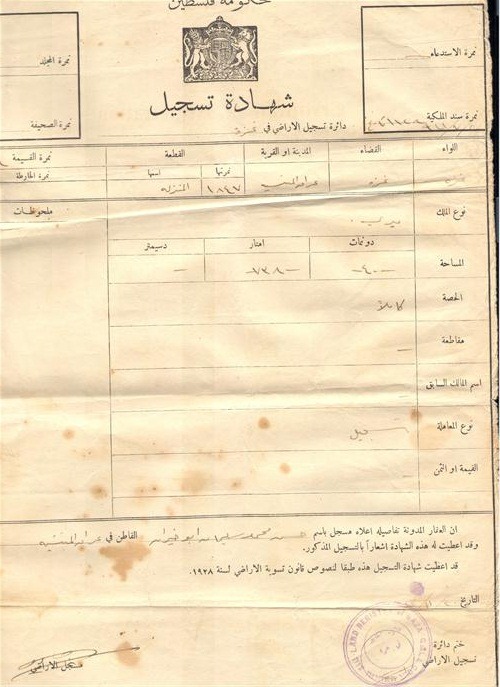 حكومة فلسطين
نمرة الاستدعاء
نمرة المجلد
شهادة تسجيل
نمرة سند الملكية
نمرة الصحيفة
دائرة تسجيل الاراضي في غزة
اللواء القضاء المدينة او القرية القطعة نمرة القسيمة
نمرتها اسمها نمرة الخارطة
غزه غزه ١٨٤٧ المنزله
نوع الملك ميري ملحوظات
دونمات امتار دسيمتر
المساحة
الحصة كاملاً
مقاطعة
اسم المالك السابق
نوع المعاملة تسجيل
القيمة او الثمن
ان العقار المدونة تفاصيله اعلاه مسجل باسم حسن محمد سليمان ابو القاطن في عراق المنشيه
وقد اعطيت له هذه الشهادة اشعاراً بالتسجيل المذكور.
قد اعطيت شهادة التسجيل هذه طبقا لنصوص قانون تسوية الاراضي لسنة ١٩٢٨
التاريخ
ختم دائرة
تسجيل الاراضي
مسجل الاراضي